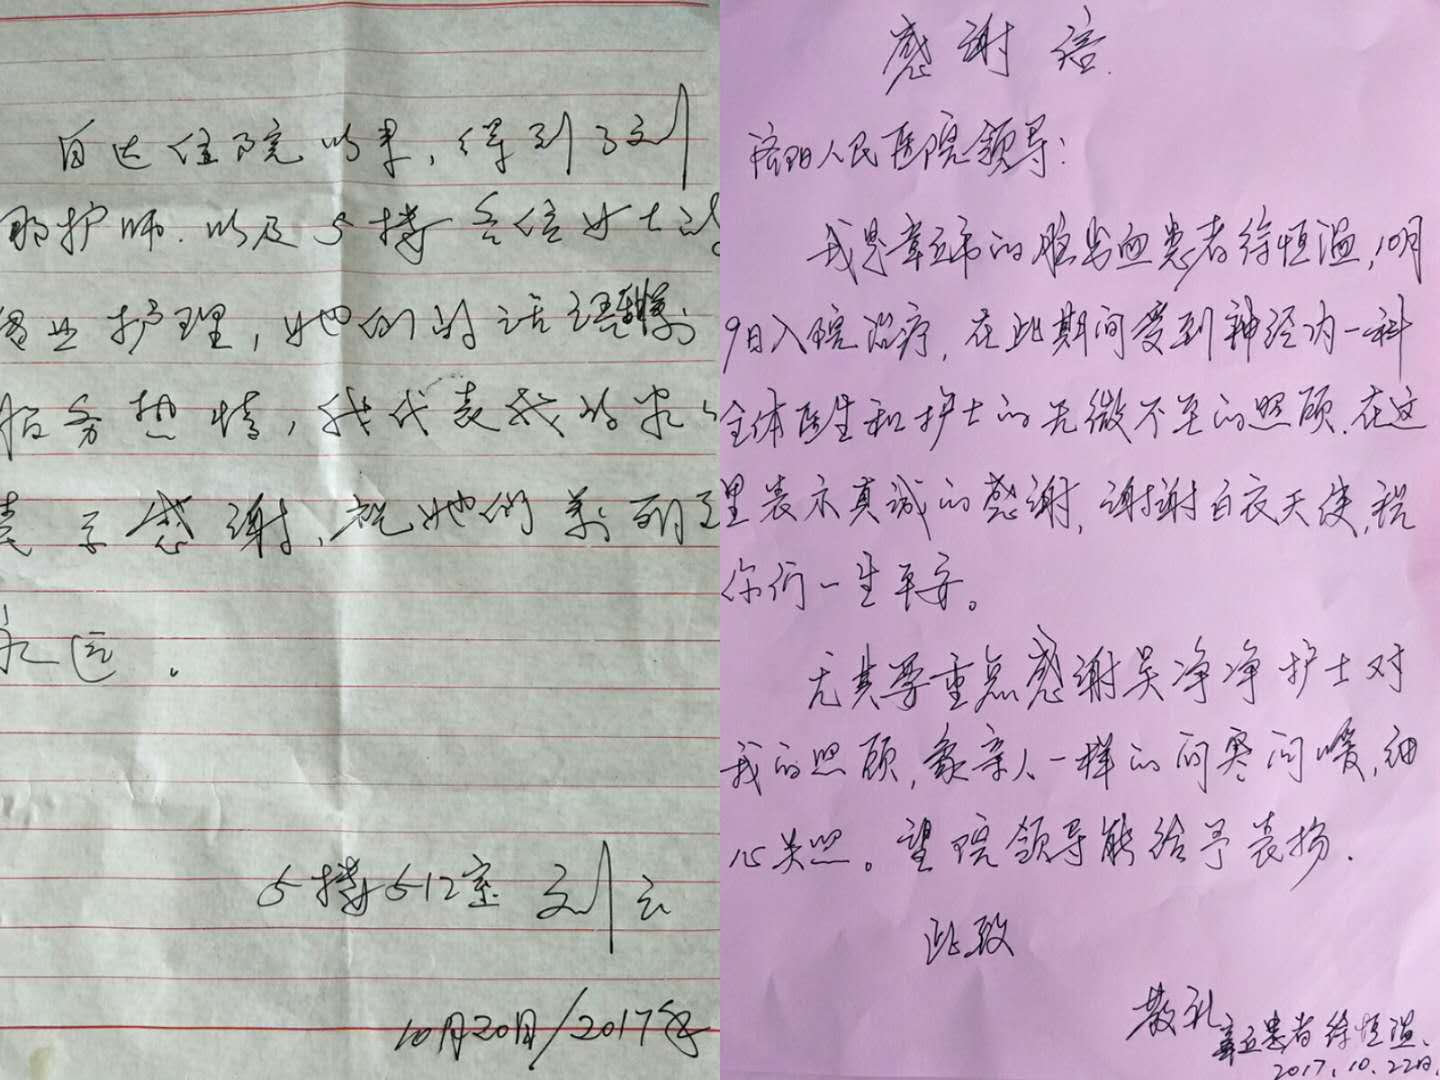 自达住院以来,得到了刘
那护师.以及5楼各位女士的
专业护理,她们的话语
服务热情,我代表我的家
表示感谢,祝她们美丽到
永远.
5楼512室 刘云
10月20日/2017年
感谢信
洛阳人民医院领导:
我是章丘市的脑出血患者徐恒温,10月
9日入院治疗,在此期间受到神经内一科
全体医生和护士的无微不至的照顾.在这
里表示真诚的感谢,谢谢白衣天使,祝
你们一生平安。
尤其要重点感谢吴净净护士对
我的照顾,象亲人一样的问寒问暖,细
心关照。望院领导能给予表扬.
此致
敬礼
章丘患者徐恒温.
2017.10.22日.